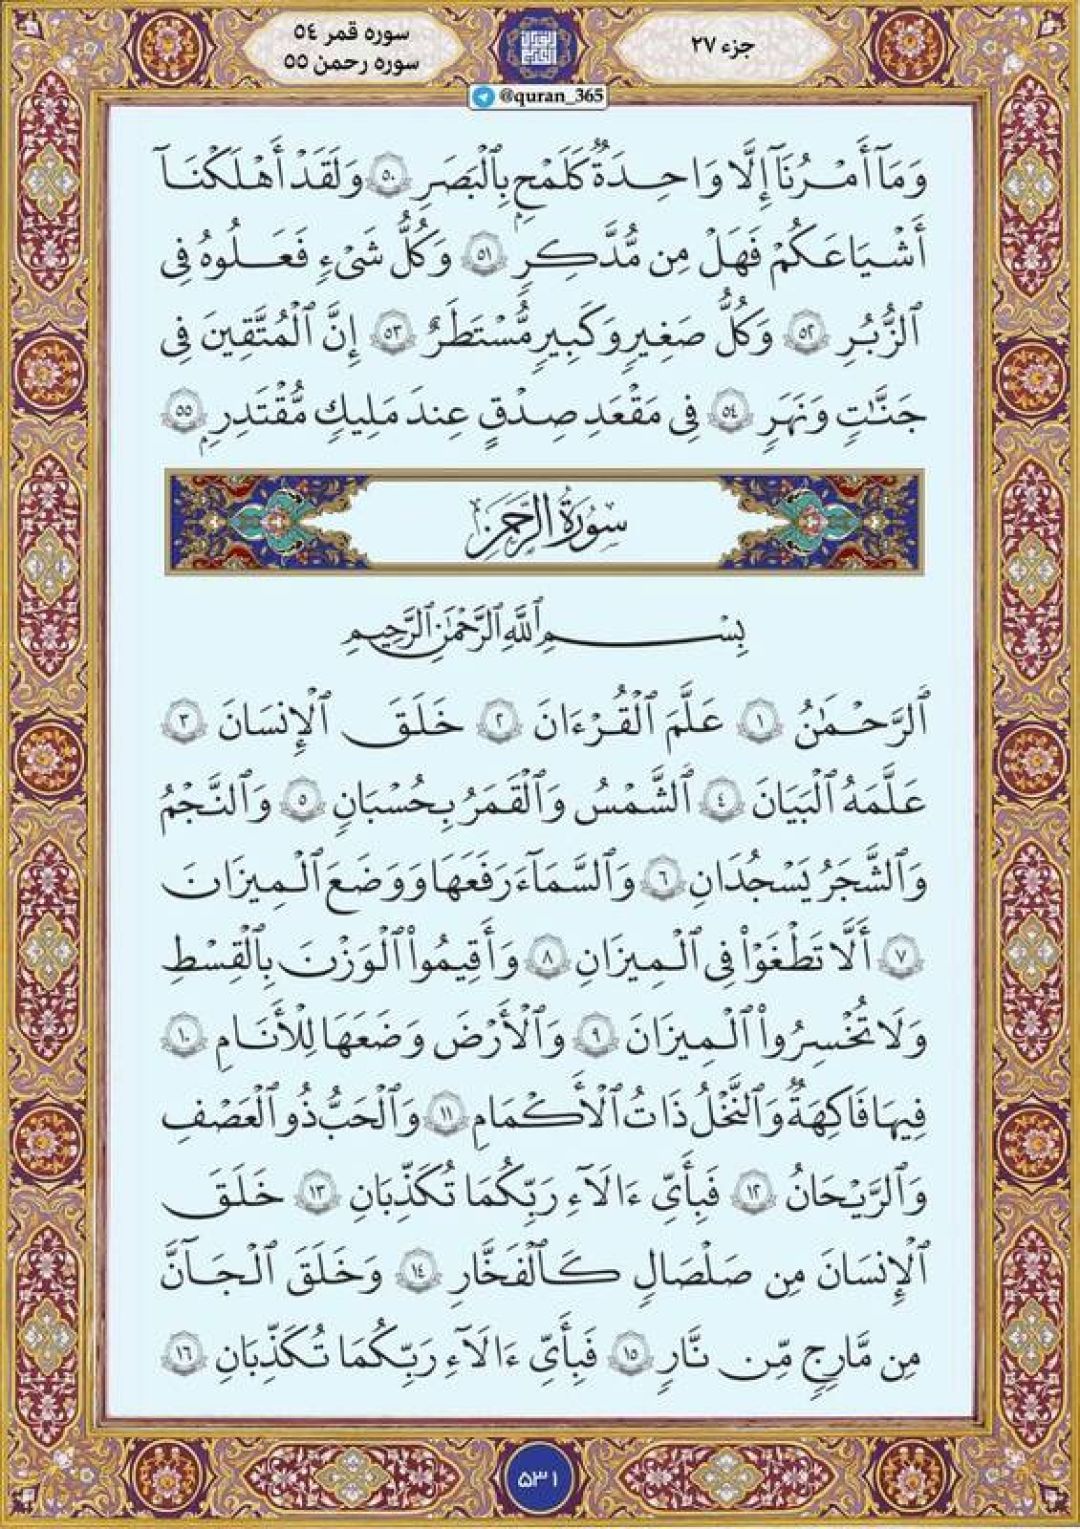 جزء ٢٧
سوره قمر ٥٤
سوره رحمن ٥٥
@quran_365
وَمَآ أَمْرُنَآ إِلَّا وَاحِدَةٌ كَلَمْحٍۭ بِالْبَصَرِ ٥٠ وَلَقَدْ أَهْلَكْنَآ
أَشْيَاعَكُمْ فَهَلْ مِن مُّدَّكِرٍ ٥١ وَكُلُّ شَىْءٍ فَعَلُوهُ فِى
ٱلزُّبُرِ ٥٢ وَكُلُّ صَغِيرٍ وَكَبِيرٍ مُّسْتَطَرٌ ٥٣ إِنَّ ٱلْمُتَّقِينَ فِى
جَنَّٰتٍ وَنَهَرٍ ٥٤ فِى مَقْعَدِ صِدْقٍ عِندَ مَلِيكٍ مُّقْتَدِرٍۭ ٥٥
سُورَةُ الرَّحْمَن
بِسْمِ ٱللَّهِ ٱلرَّحْمَٰنِ ٱلرَّحِيمِ
ٱلرَّحْمَٰنُ ١ عَلَّمَ ٱلْقُرْءَانَ ٢ خَلَقَ ٱلْإِنسَانَ ٣
عَلَّمَهُ ٱلْبَيَانَ ٤ ٱلشَّمْسُ وَٱلْقَمَرُ بِحُسْبَانٍ ٥ وَٱلنَّجْمُ
وَٱلشَّجَرُ يَسْجُدَانِ ٦ وَٱلسَّمَآءَ رَفَعَهَا وَوَضَعَ ٱلْمِيزَانَ
٧ أَلَّا تَطْغَوْا۟ فِى ٱلْمِيزَانِ ٨ وَأَقِيمُوا۟ ٱلْوَزْنَ بِٱلْقِسْطِ
وَلَا تُخْسِرُوا۟ ٱلْمِيزَانَ ٩ وَٱلْأَرْضَ وَضَعَهَا لِلْأَنَامِ ١٠
فِيهَا فَاكِهَةٌ وَٱلنَّخْلُ ذَاتُ ٱلْأَكْمَامِ ١١ وَٱلْحَبُّ ذُو ٱلْعَصْفِ
وَٱلرَّيْحَانُ ١٢ فَبِأَىِّ ءَالَآءِ رَبِّكُمَا تُكَذِّبَانِ ١٣ خَلَقَ
ٱلْإِنسَانَ مِن صَلْصَالٍ كَٱلْفَخَّارِ ١٤ وَخَلَقَ ٱلْجَآنَّ
مِن مَّارِجٍ مِّن نَّارٍ ١٥ فَبِأَىِّ ءَالَآءِ رَبِّكُمَا تُكَذِّبَانِ ١٦
٥٣١